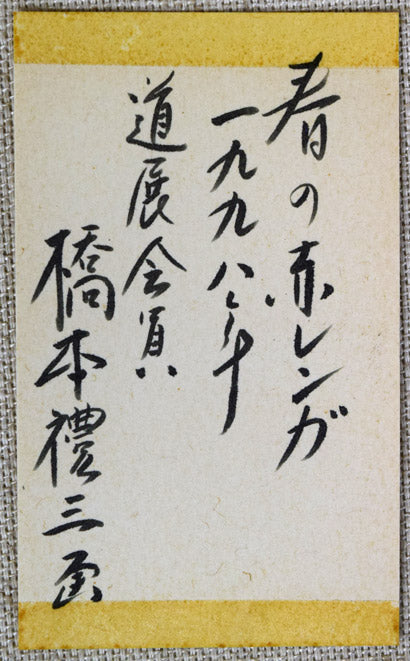 春の赤レンガ
一九九八年
道展会員
橋本禮三画